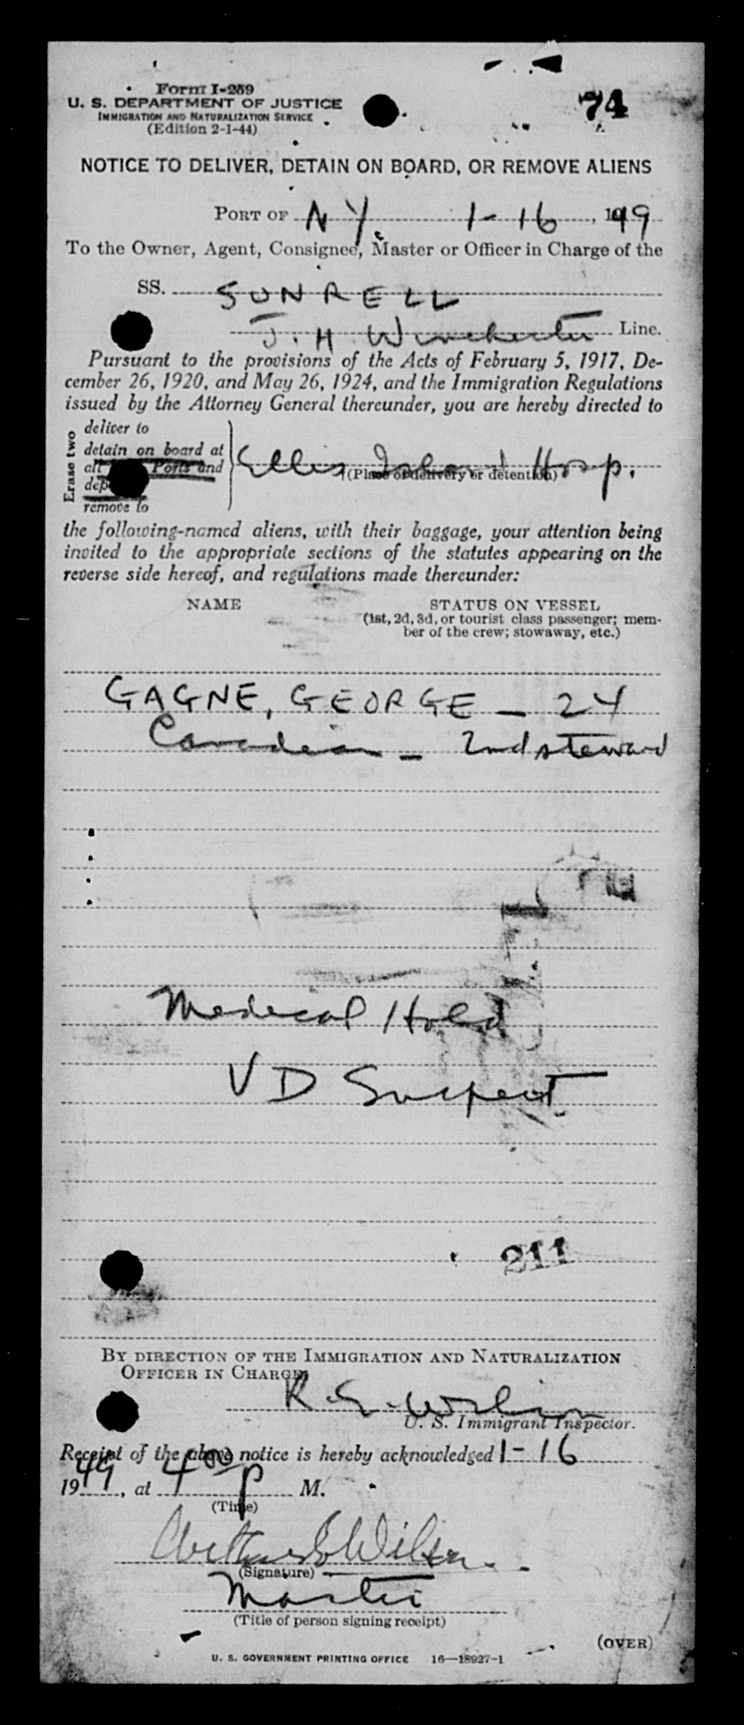 Form I-259
U. S. DEPARTMENT OF JUSTICE
IMMIGRATION AND NATURALIZATION SERVICE
(Edition 2-1-44)
74
NOTICE TO DELIVER, DETAIN ON BOARD, OR REMOVE ALIENS
PORT OF NY. 1-16, 1949
To the Owner, Agent, Consignee, Master or Officer in Charge of the
SS. SUNRELL
J. H. Winchester Line.
Pursuant to the provisions of the Acts of February 5, 1917, De-
cember 26, 1920, and May 26, 1924, and the Immigration Regulations
issued by the Attorney General thereunder, you are hereby directed to
Erase two
deliver to
detain on board at
all Ports and
remove to
Ellis Island Hosp.
(Place of delivery or detention)
the following-named aliens, with their baggage, your attention being
invited to the appropriate sections of the statutes appearing on the
reverse side hereof, and regulations made thereunder:
NAME STATUS ON VESSEL
(1st, 2d, 3d, or tourist class passenger; mem-
ber of the crew; stowaway, etc.)
GAGNE, GEORGE - 24
Canadian - 2nd steward
Medical Hold
VD Suspect
211
BY DIRECTION OF THE IMMIGRATION AND NATURALIZATION
OFFICER IN CHARGE
R. E. Wilson
U. S. Immigrant Inspector.
Receipt of the above notice is hereby acknowledged 1-16
1949, at 4 00 P M.
(Time)
Wilson
(Signature)
Master
(Title of person signing receipt)
(OVER)
U. S. GOVERNMENT PRINTING OFFICE 16—18927-1